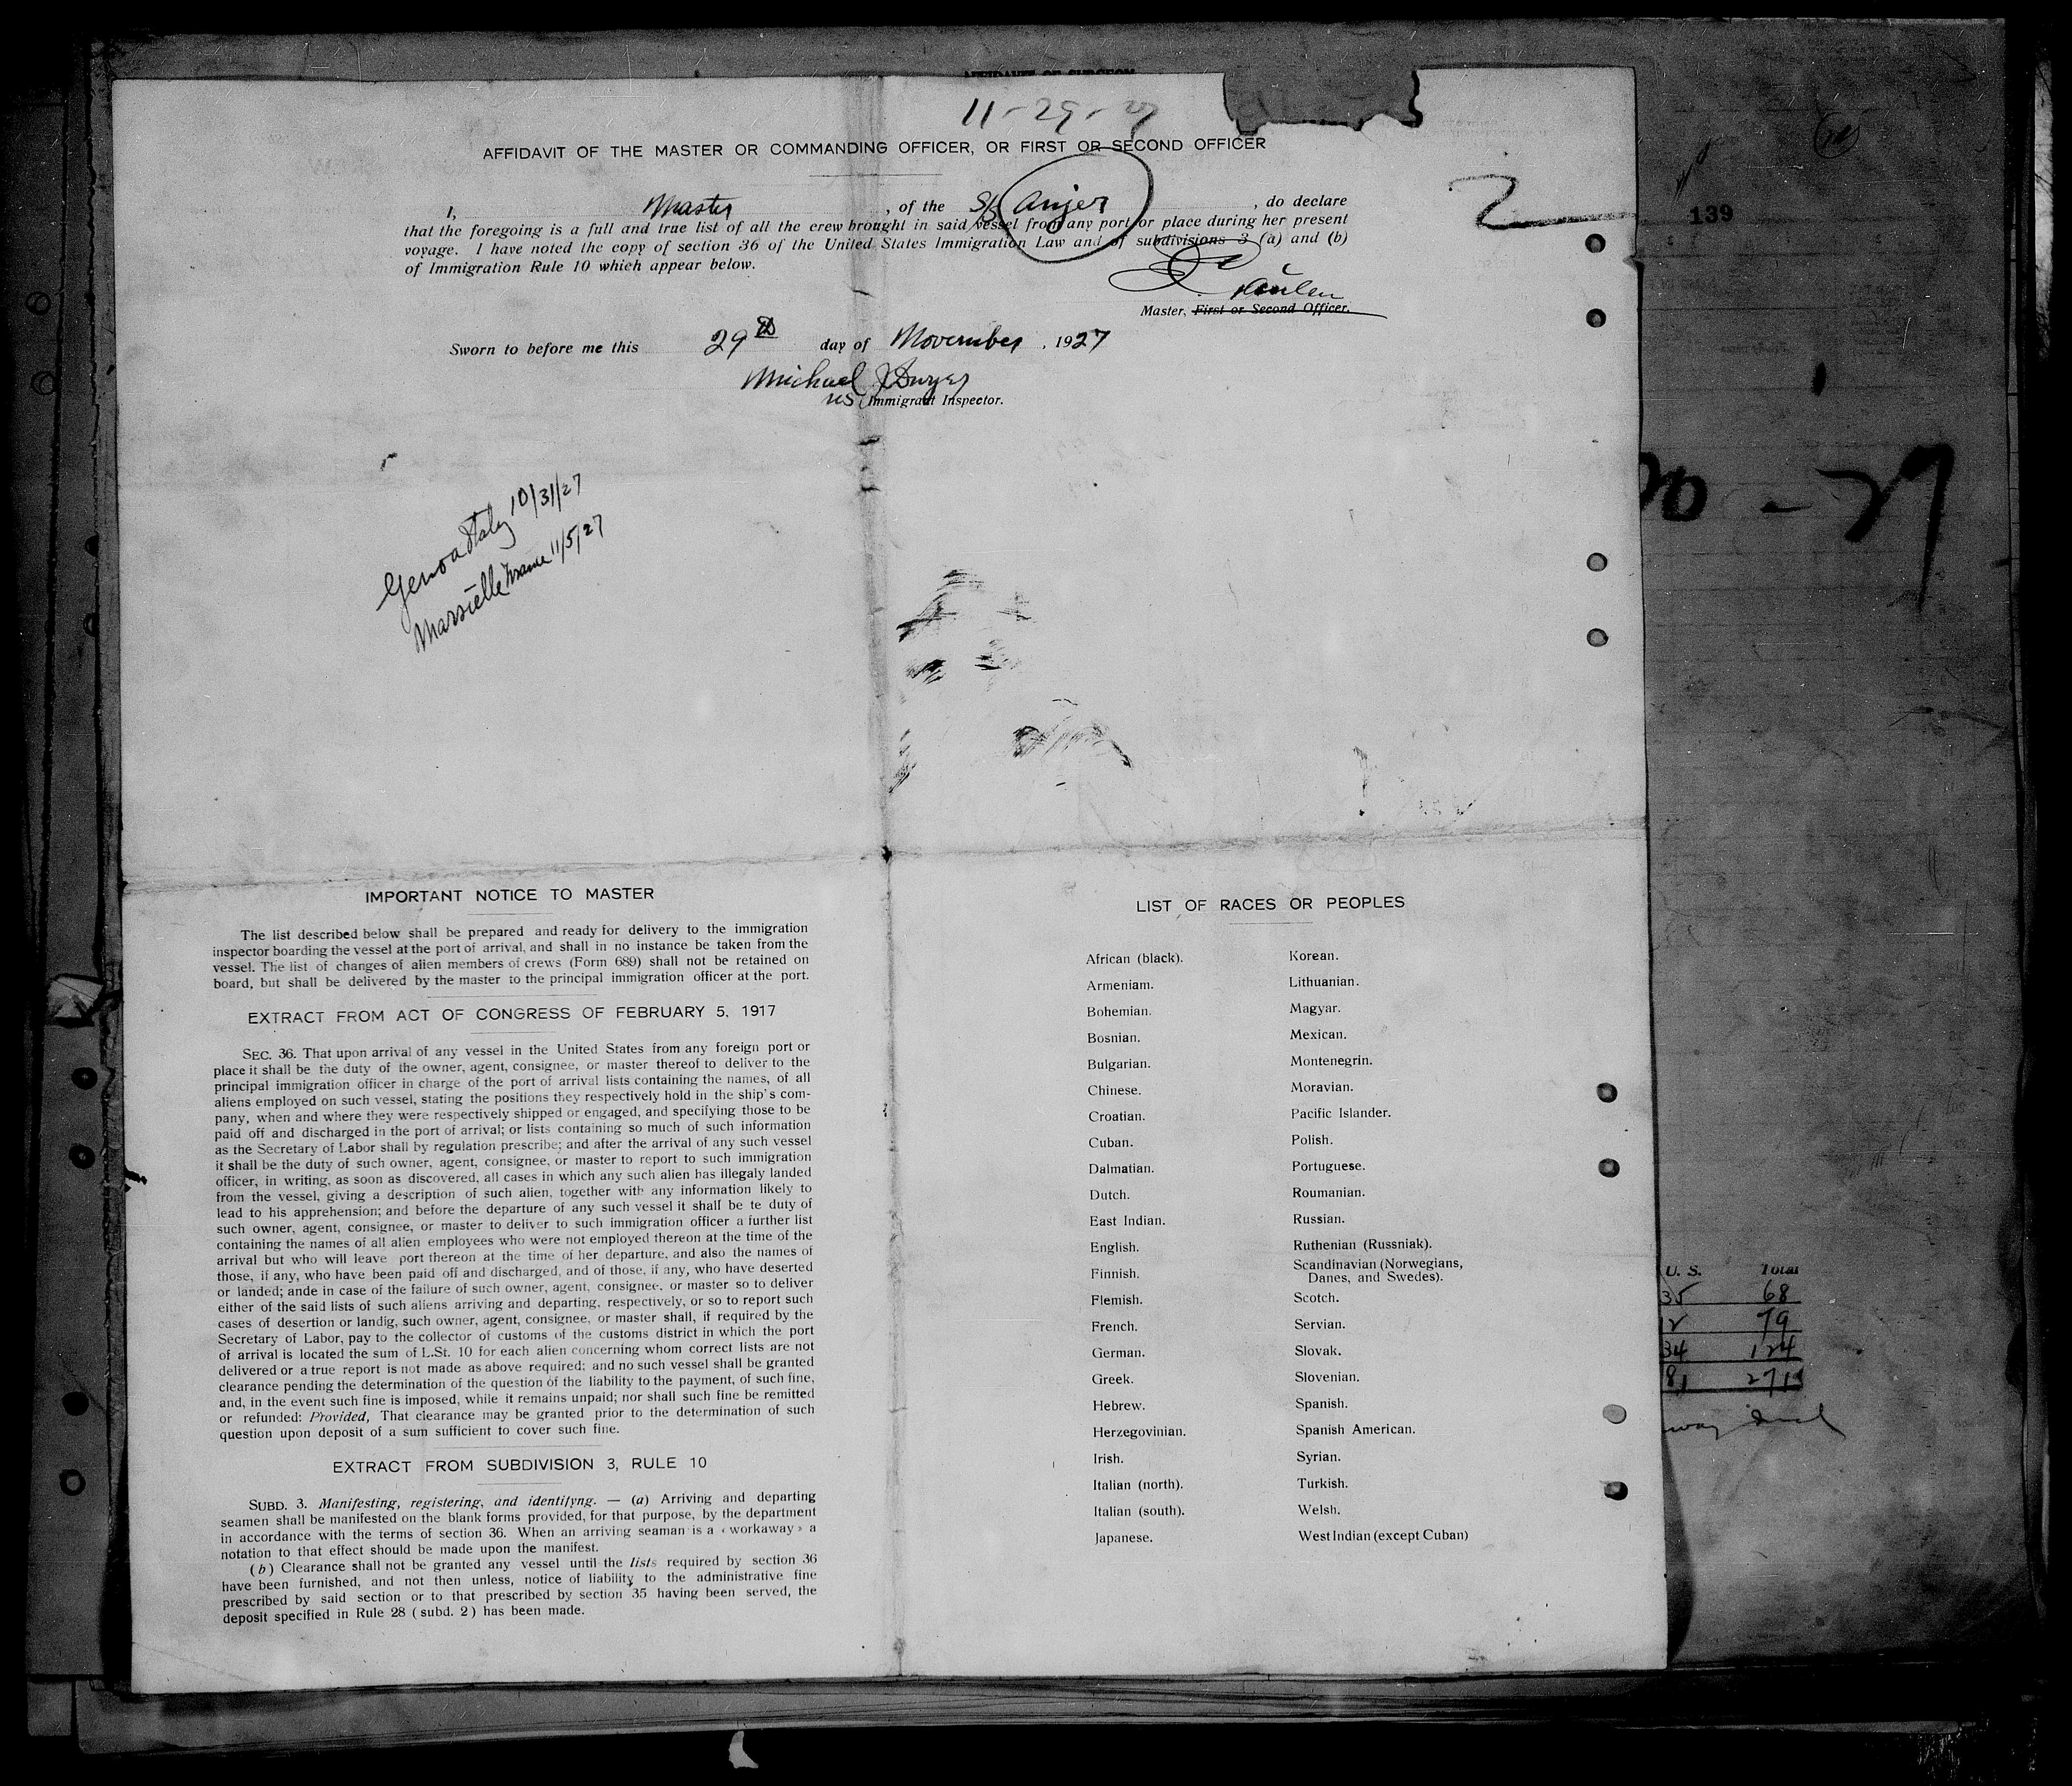 AFFIDAVIT OF SURGEON
11-29-27
AFFIDAVIT OF THE MASTER OR COMMANDING OFFICER, OR FIRST OR SECOND OFFICER
2
139
I, Master, of the S/S Anjer, do declare
that the foregoing is a full and true list of all the crew brought in said vessel from any port or place during her present
voyage. I have noted the copy of section 36 of the United States Immigration Law and of subdivisions 3 (a) and (b)
of Immigration Rule 10 which appear below.
Master, First or Second Officer.
Sworn to before me this 29th day of November, 1927
Michael J Dwyer
US Immigrant Inspector.
Genoa Italy 10/31/27
Marseille France 11/5/27
- 27
IMPORTANT NOTICE TO MASTER
The list described below shall be prepared and ready for delivery to the immigration
inspector boarding the vessel at the port of arrival, and shall in no instance be taken from the
vessel. The list of changes of alien members of crews (Form 689) shall not be retained on
board, but shall be delivered by the master to the principal immigration officer at the port.
EXTRACT FROM ACT OF CONGRESS OF FEBRUARY 5, 1917
SEC. 36. That upon arrival of any vessel in the United States from any foreign port or
place it shall be the duty of the owner, agent, consignee, or master thereof to deliver to the
principal immigration officer in charge of the port of arrival lists containing the names, of all
aliens employed on such vessel, stating the positions they respectively hold in the ship's com-
pany, when and where they were respectively shipped or engaged, and specifying those to be
paid off and discharged in the port of arrival; or lists containing so much of such information
as the Secretary of Labor shall by regulation prescribe; and after the arrival of any such vessel
it shall be the duty of such owner, agent, consignee, or master to report to such immigration
officer, in writing, as soon as discovered, all cases in which any such alien has illegaly landed
from the vessel, giving a description of such alien, together with any information likely to
lead to his apprehension; and before the departure of any such vessel it shall be te duty of
such owner, agent, consignee, or master to deliver to such immigration officer a further list
containing the names of all alien employees who were not employed thereon at the time of the
arrival but who will leave port thereon at the time of her departure, and also the names of
those, if any, who have been paid off and discharged, and of those, if any, who have deserted
or landed; ande in case of the failure of such owner, agent, consignee, or master so to deliver
either of the said lists of such aliens arriving and departing, respectively, or so to report such
cases of desertion or landig, such owner, agent, consignee, or master shall, if required by the
Secretary of Labor, pay to the collector of customs of the customs district in which the port
of arrival is located the sum of L.St. 10 for each alien concerning whom correct lists are not
delivered or a true report is not made as above required; and no such vessel shall be granted
clearance pending the determination of the question of the liability to the payment, of such fine,
and, in the event such fine is imposed, while it remains unpaid; nor shall such fine be remitted
or refunded: Provided, That clearance may be granted prior to the determination of such
question upon deposit of a sum sufficient to cover such fine.
EXTRACT FROM SUBDIVISION 3, RULE 10
SUBD. 3. Manifesting, registering, and identifyng. — (a) Arriving and departing
seamen shall be manifested on the blank forms provided, for that purpose, by the department
in accordance with the terms of section 36. When an arriving seaman is a « workaway » a
notation to that effect should be made upon the manifest.
(b) Clearance shall not be granted any vessel until the lists required by section 36
have been furnished, and not then unless, notice of liability to the administrative fine
prescribed by said section or to that prescribed by section 35 having been served, the
deposit specified in Rule 28 (subd. 2) has been made.
LIST OF RACES OR PEOPLES
African (black).
Armeniam.
Bohemian.
Bosnian.
Bulgarian.
Chinese.
Croatian.
Cuban.
Dalmatian.
Dutch.
East Indian.
English.
Finnish.
Flemish.
French.
German.
Greek.
Hebrew.
Herzegovinian.
Irish.
Italian (north).
Italian (south).
Japanese.
Korean.
Lithuanian.
Magyar.
Mexican.
Montenegrin.
Moravian.
Pacific Islander.
Polish.
Portuguese.
Roumanian.
Russian.
Ruthenian (Russniak).
Scandinavian (Norwegians,
Danes, and Swedes).
Scotch.
Servian.
Slovak.
Slovenian.
Spanish.
Spanish American.
Syrian.
Turkish.
Welsh.
West Indian (except Cuban)
U. S. Total
35 68
12 79
34 124
81 271